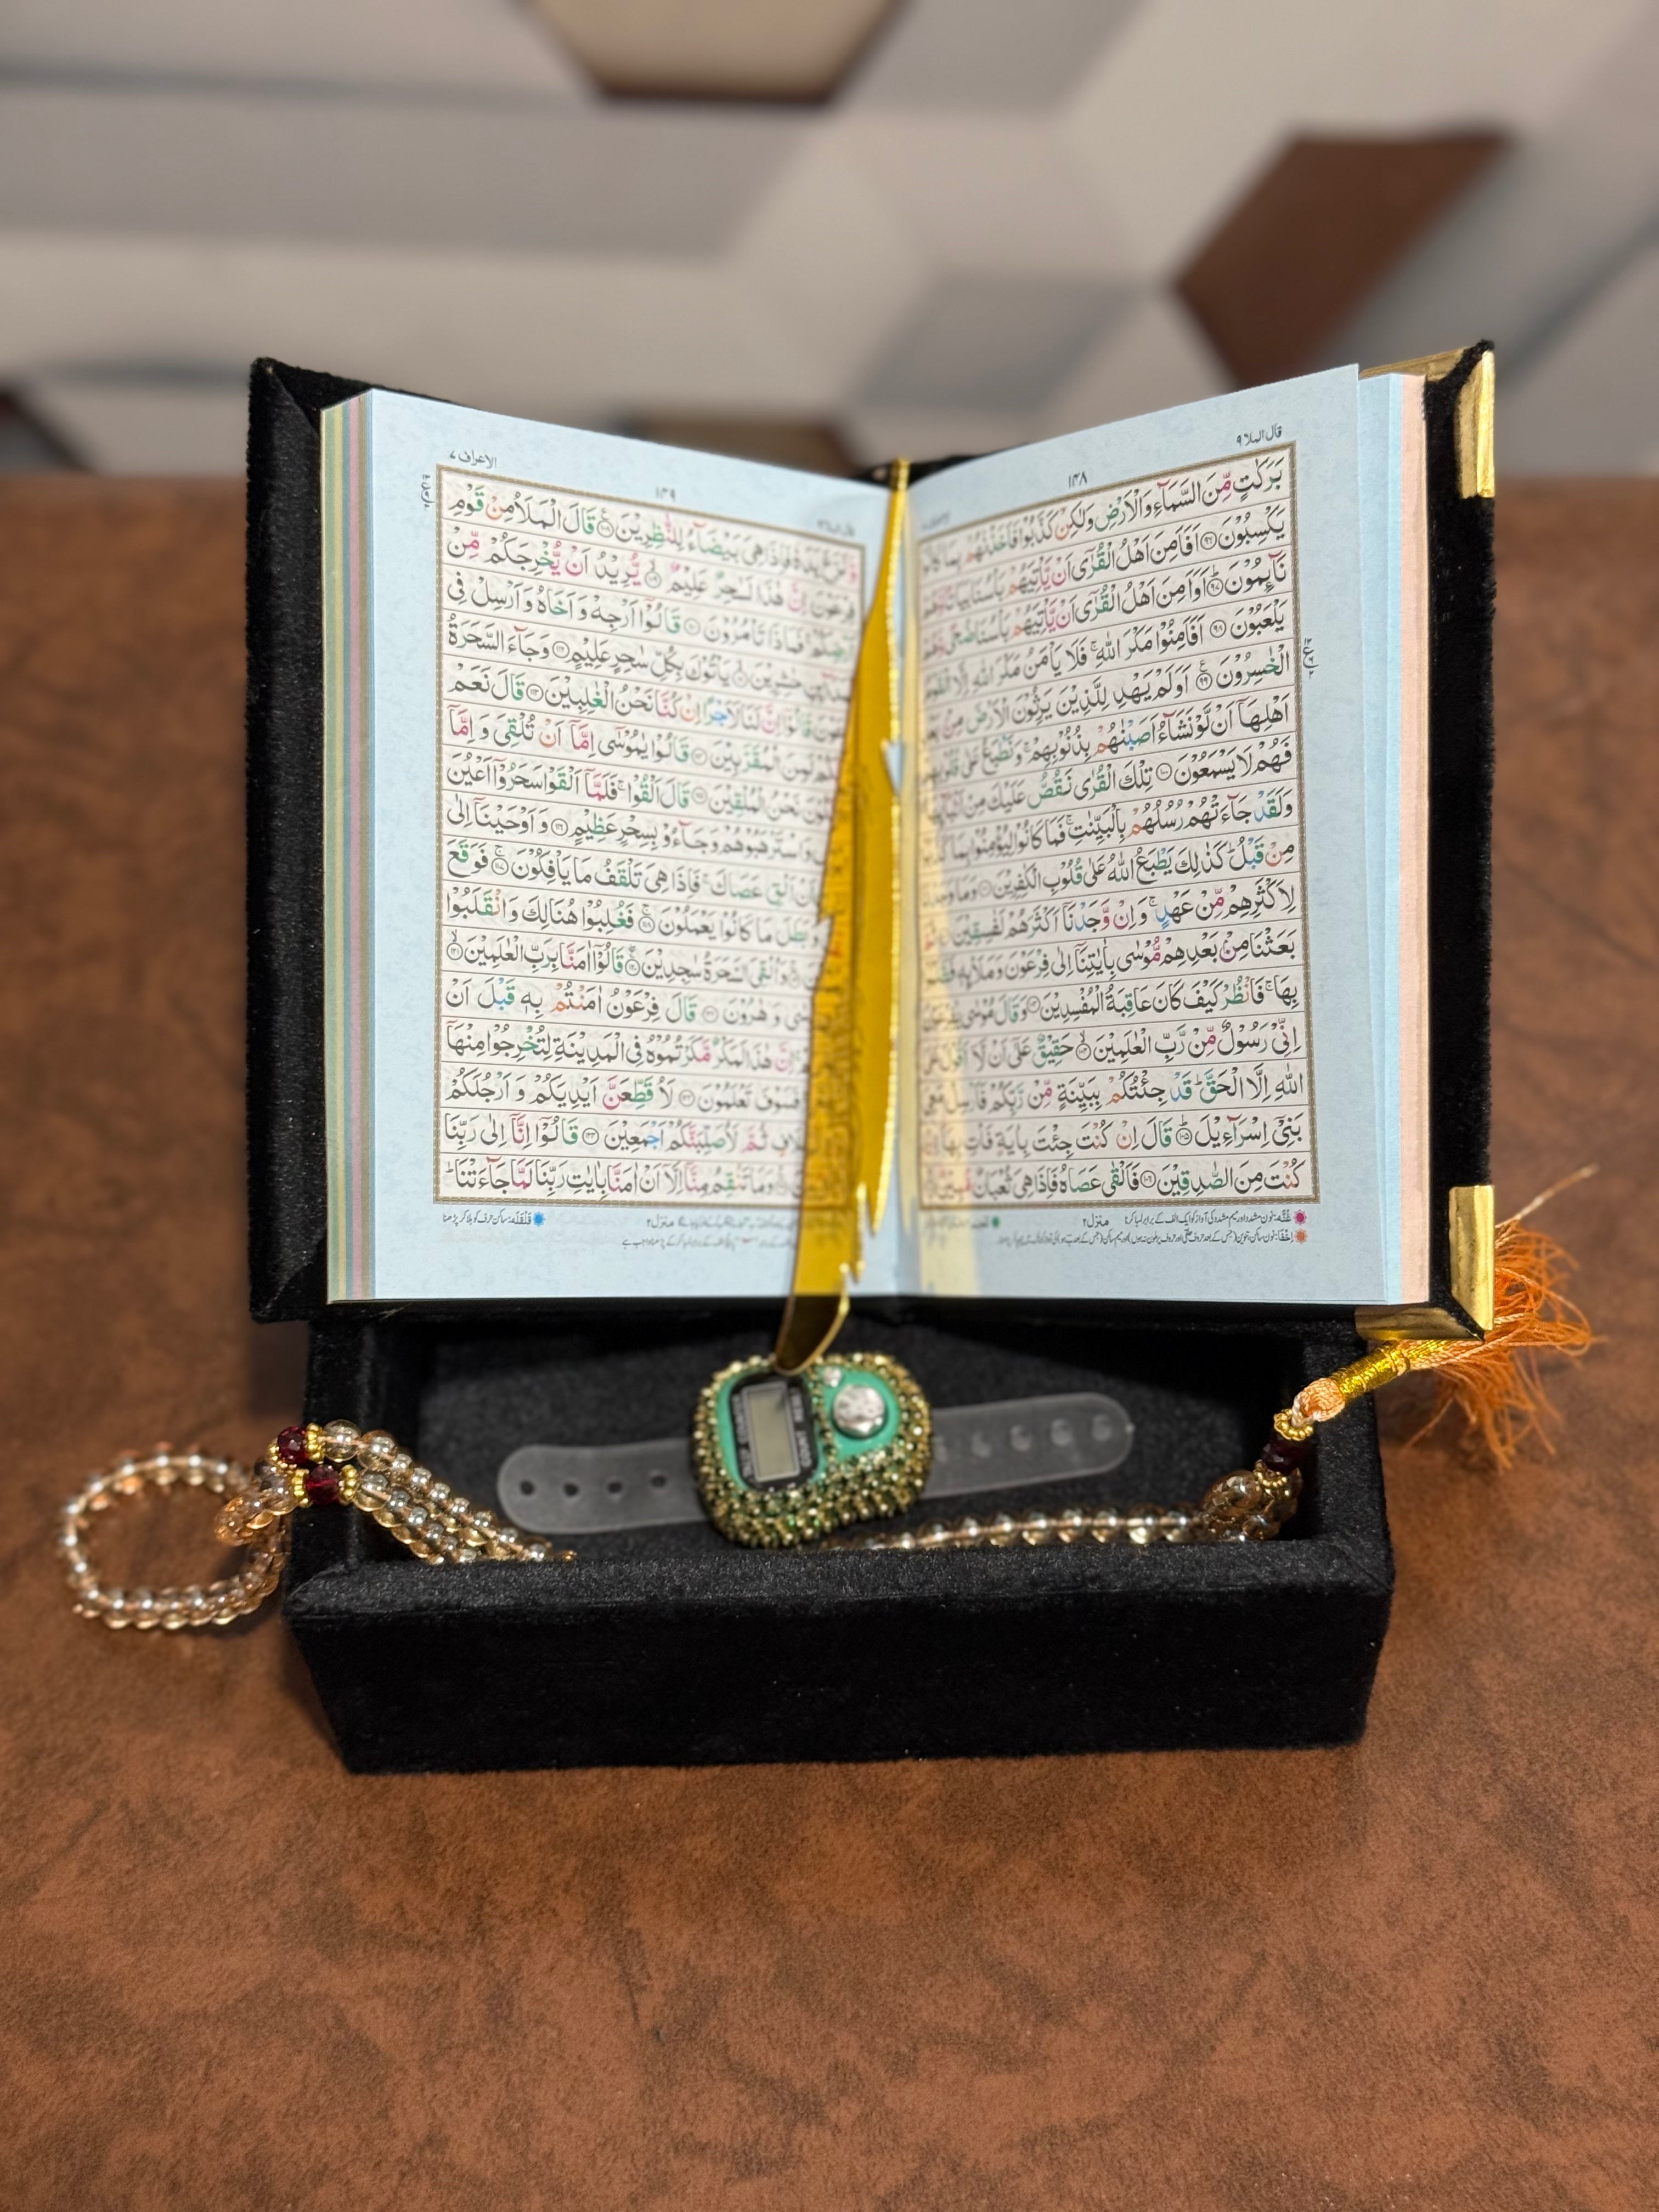 قال الملا ٩
١٤٨
بَرَكٰتٍ مِّنَ السَّمَآءِ وَالْاَرْضِ وَلٰكِنْ كَذَّبُوْا فَاَخَذْنٰهُمْ بِمَا كَانُوْا
يَكْسِبُوْنَ ﴿٩٦﴾ اَفَاَمِنَ اَهْلُ الْقُرٰٓى اَنْ يَّاْتِيَهُمْ بَاْسُنَا بَيَاتًا وَّهُمْ
نَآئِمُوْنَ ﴿٩٧﴾ اَوَاَمِنَ اَهْلُ الْقُرٰٓى اَنْ يَّاْتِيَهُمْ بَاْسُنَا ضُحًى وَّهُمْ
يَلْعَبُوْنَ ﴿٩٨﴾ اَفَاَمِنُوْا مَكْرَ اللّٰهِ ۚ فَلَا يَاْمَنُ مَكْرَ اللّٰهِ اِلَّا الْقَوْمُ
الْخٰسِرُوْنَ ﴿٩٩﴾ اَوَلَمْ يَهْدِ لِلَّذِيْنَ يَرِثُوْنَ الْاَرْضَ مِنْۢ بَعْدِ
اَهْلِهَآ اَنْ لَّوْ نَشَآءُ اَصَبْنٰهُمْ بِذُنُوْبِهِمْ ۚ وَنَطْبَعُ عَلٰى قُلُوْبِهِمْ
فَهُمْ لَا يَسْمَعُوْنَ ﴿١٠٠﴾ تِلْكَ الْقُرٰى نَقُصُّ عَلَيْكَ مِنْ اَنْۢبَآئِهَا ۚ
وَلَقَدْ جَآءَتْهُمْ رُسُلُهُمْ بِالْبَيِّنٰتِ ۚ فَمَا كَانُوْا لِيُؤْمِنُوْا بِمَا كَذَّبُوْا
مِنْ قَبْلُ ؕ كَذٰلِكَ يَطْبَعُ اللّٰهُ عَلٰى قُلُوْبِ الْكٰفِرِيْنَ ﴿١٠١﴾ وَمَا وَجَدْنَا
لِاَكْثَرِهِمْ مِّنْ عَهْدٍ ۚ وَاِنْ وَّجَدْنَآ اَكْثَرَهُمْ لَفٰسِقِيْنَ
بَعَثْنَا مِنْۢ بَعْدِهِمْ مُّوْسٰى بِاٰيٰتِنَآ اِلٰى فِرْعَوْنَ وَمَلَا۟ئِهٖ فَظَلَمُوْا
بِهَا ۚ فَانْظُرْ كَيْفَ كَانَ عَاقِبَةُ الْمُفْسِدِيْنَ ﴿١٠٣﴾ وَقَالَ مُوْسٰى يٰفِرْعَوْنُ
اِنِّىْ رَسُوْلٌ مِّنْ رَّبِّ الْعٰلَمِيْنَ ﴿١٠٤﴾ حَقِيْقٌ عَلٰٓى اَنْ لَّآ اَقُوْلَ عَلَى
اللّٰهِ اِلَّا الْحَقَّ ؕ قَدْ جِئْتُكُمْ بِبَيِّنَةٍ مِّنْ رَّبِّكُمْ فَاَرْسِلْ مَعِىَ
بَنِىْٓ اِسْرَآءِيْلَ ﴿١٠٥﴾ قَالَ اِنْ كُنْتَ جِئْتَ بِاٰيَةٍ فَاْتِ بِهَآ اِنْ
كُنْتَ مِنَ الصّٰدِقِيْنَ ﴿١٠٦﴾ فَاَلْقٰى عَصَاهُ فَاِذَا هِىَ ثُعْبَانٌ مُّبِيْنٌ
غُنَّه: نون مشدد اور میم مشدد کی آواز کو ایک الف کے برابر لمبا کرنا منزل ٢
الاعراف ٧
١٤٩
وَّنَزَعَ يَدَهٗ فَاِذَا هِىَ بَيْضَآءُ لِلنّٰظِرِيْنَ ﴿١٠٨﴾ قَالَ الْمَلَاُ مِنْ قَوْمِ
فِرْعَوْنَ اِنَّ هٰذَا لَسٰحِرٌ عَلِيْمٌ ﴿١٠٩﴾ يُّرِيْدُ اَنْ يُّخْرِجَكُمْ مِّنْ
اَرْضِكُمْ ۚ فَمَاذَا تَاْمُرُوْنَ ﴿١١٠﴾ قَالُوْٓا اَرْجِهْ وَاَخَاهُ وَاَرْسِلْ فِى
الْمَدَآئِنِ حٰشِرِيْنَ ﴿١١١﴾ يَاْتُوْكَ بِكُلِّ سٰحِرٍ عَلِيْمٍ ﴿١١٢﴾ وَجَآءَ السَّحَرَةُ
قَالُوْٓا اِنَّ لَنَا لَاَجْرًا اِنْ كُنَّا نَحْنُ الْغٰلِبِيْنَ ﴿١١٣﴾ قَالَ نَعَمْ
لَمِنَ الْمُقَرَّبِيْنَ ﴿١١٤﴾ قَالُوْا يٰمُوْسٰٓى اِمَّآ اَنْ تُلْقِىَ وَاِمَّآ
نَحْنُ الْمُلْقِيْنَ ﴿١١٥﴾ قَالَ اَلْقُوْا ۚ فَلَمَّآ اَلْقَوْا سَحَرُوْٓا اَعْيُنَ
وَاسْتَرْهَبُوْهُمْ وَجَآءُوْ بِسِحْرٍ عَظِيْمٍ ﴿١١٦﴾ وَاَوْحَيْنَآ اِلٰى
اَنْ اَلْقِ عَصَاكَ ۚ فَاِذَا هِىَ تَلْقَفُ مَا يَاْفِكُوْنَ ﴿١١٧﴾ فَوَقَعَ
وَبَطَلَ مَا كَانُوْا يَعْمَلُوْنَ ﴿١١٨﴾ فَغُلِبُوْا هُنَالِكَ وَانْقَلَبُوْا
وَاُلْقِىَ السَّحَرَةُ سٰجِدِيْنَ ﴿١٢٠﴾ قَالُوْٓا اٰمَنَّا بِرَبِّ الْعٰلَمِيْنَ ﴿١٢١﴾
وَهٰرُوْنَ ﴿١٢٢﴾ قَالَ فِرْعَوْنُ اٰمَنْتُمْ بِهٖ قَبْلَ اَنْ
اِنَّ هٰذَا لَمَكْرٌ مَّكَرْتُمُوْهُ فِى الْمَدِيْنَةِ لِتُخْرِجُوْا مِنْهَآ
فَسَوْفَ تَعْلَمُوْنَ ﴿١٢٣﴾ لَاُقَطِّعَنَّ اَيْدِيَكُمْ وَاَرْجُلَكُمْ
خِلَافٍ ثُمَّ لَاُصَلِّبَنَّكُمْ اَجْمَعِيْنَ ﴿١٢٤﴾ قَالُوْٓا اِنَّآ اِلٰى رَبِّنَا
وَمَا تَنْقِمُ مِنَّآ اِلَّآ اَنْ اٰمَنَّا بِاٰيٰتِ رَبِّنَا لَمَّا جَآءَتْنَا ؕ
منزل ٢ قلقله: ساکن حرف کو ہلا کر پڑھنا